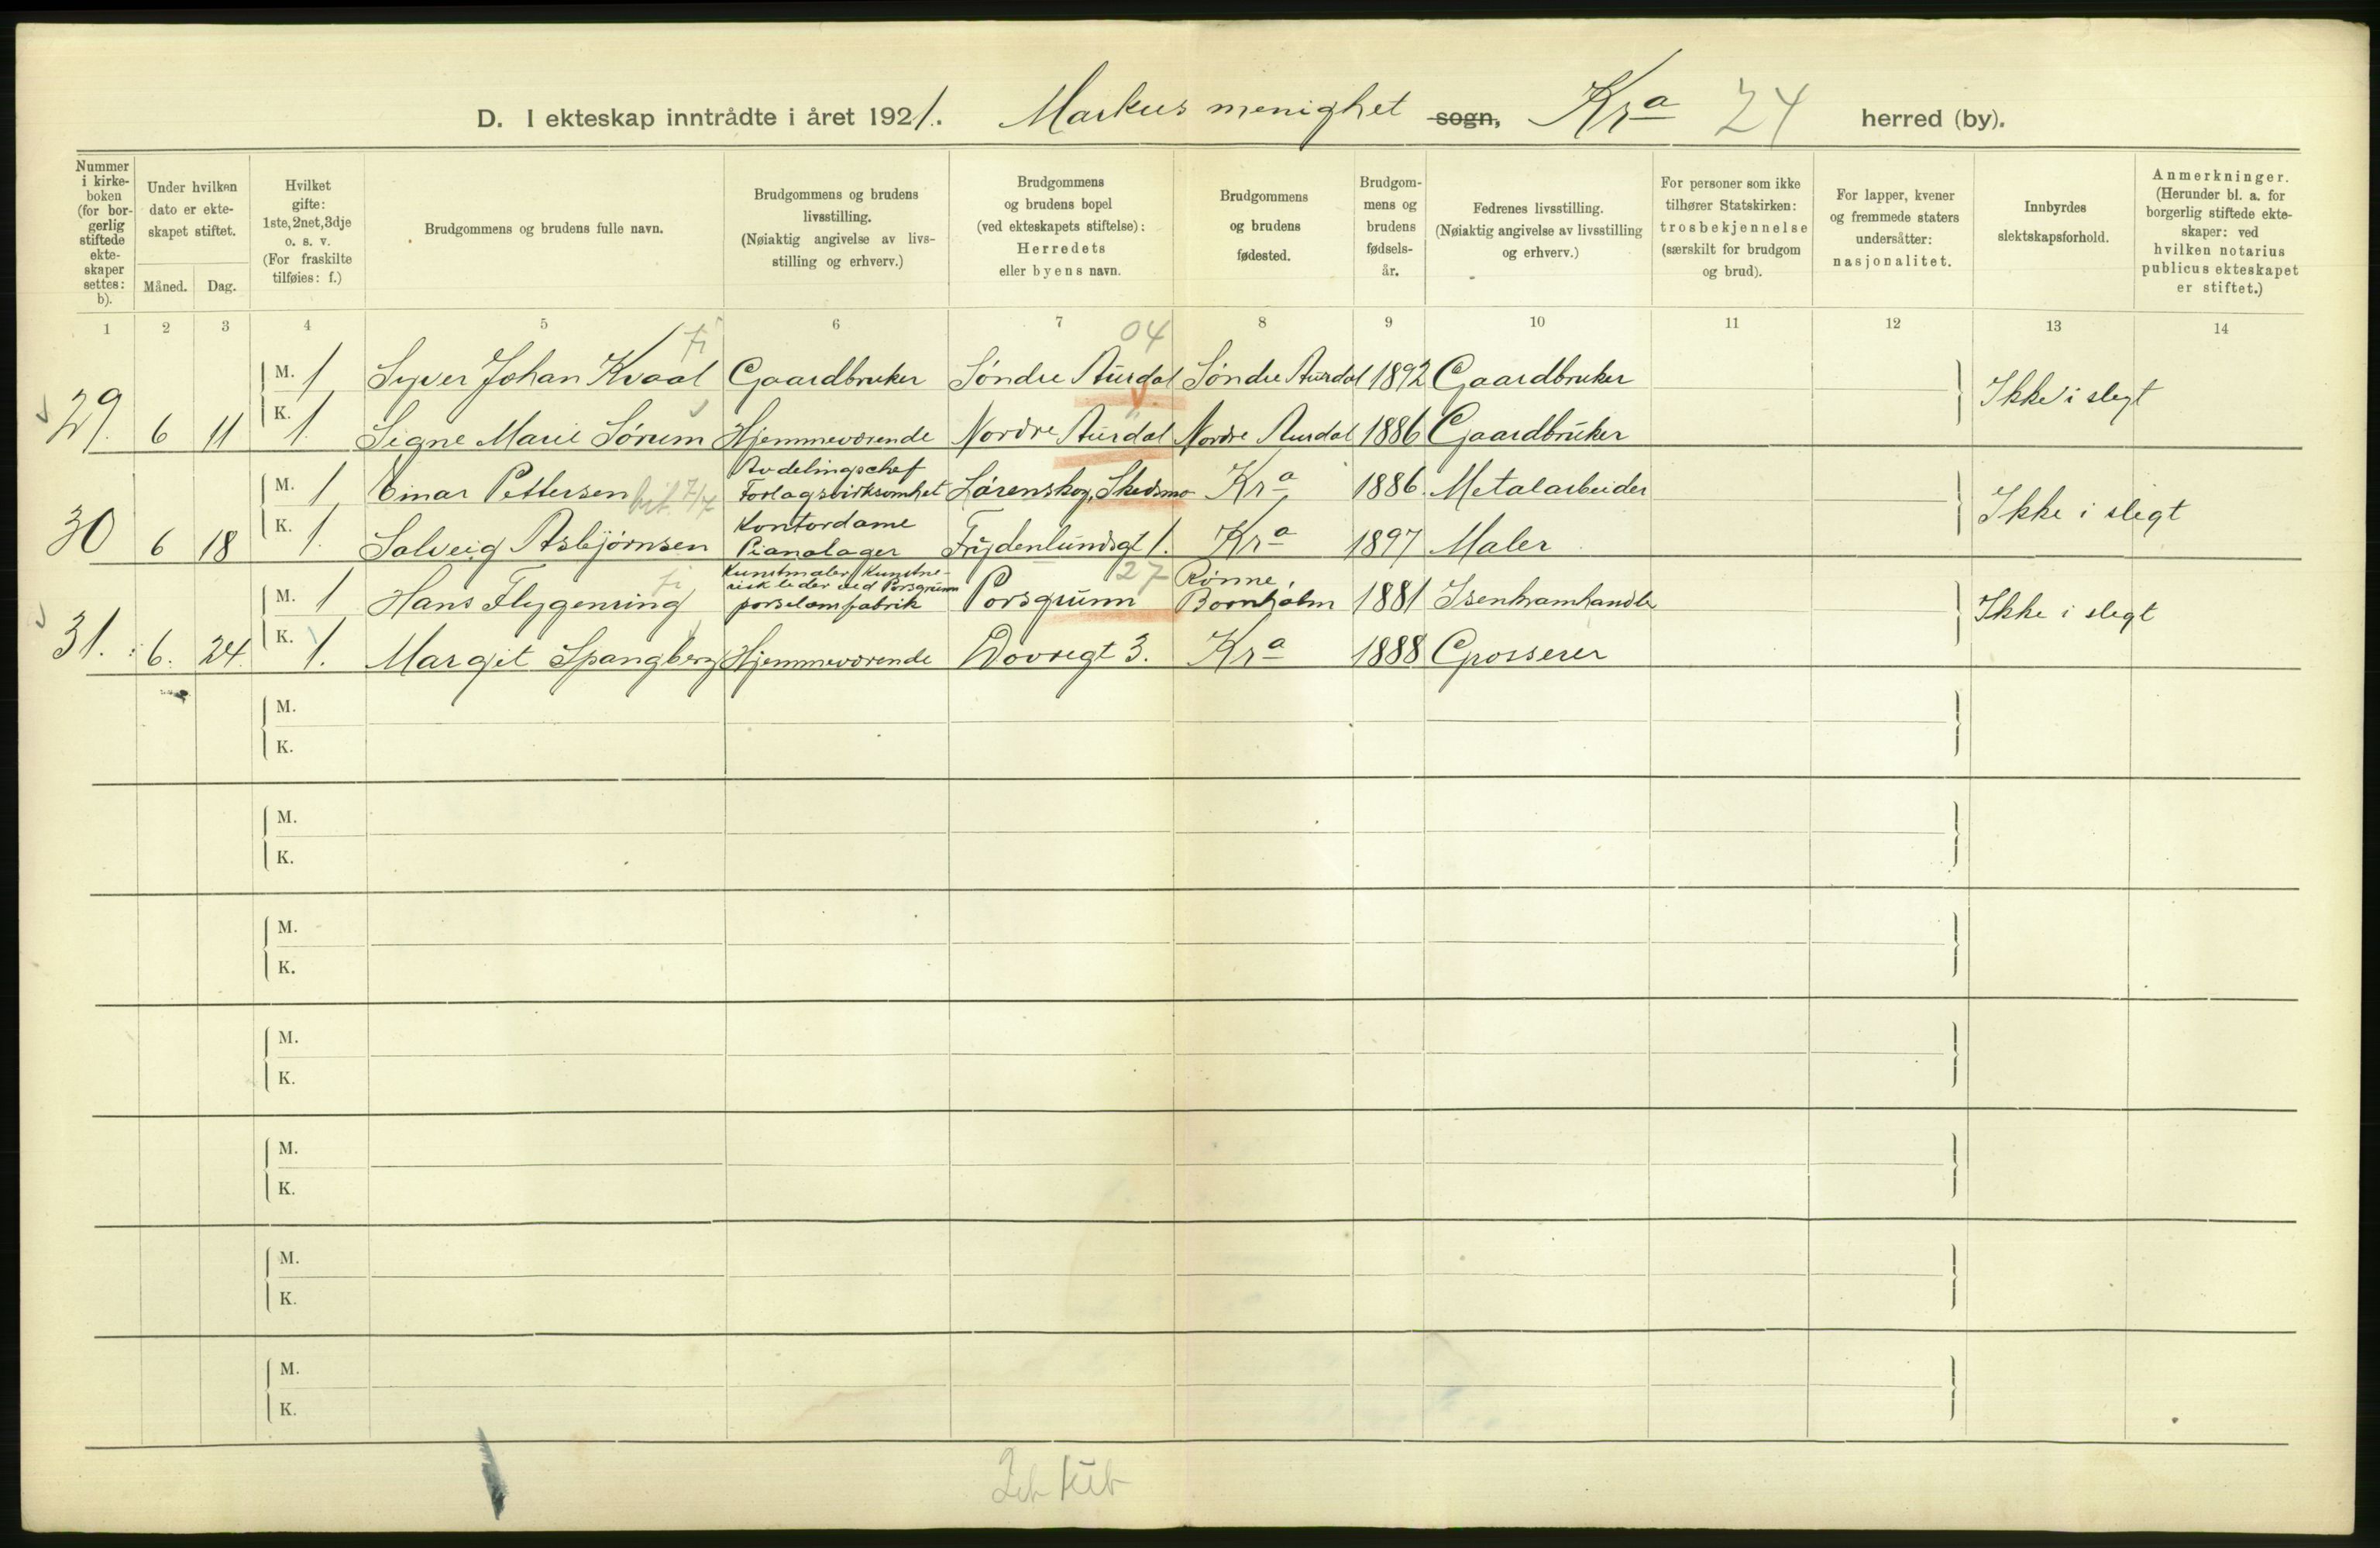 D. I ekteskap inntrådte i året 1921. Markus menighet sogn, Kra 24 herred (by).
Nummer i kirkeboken (for borgerlig stiftede ekteskaper settes: b).
Under hvilken dato er ekteskapet stiftet.
Måned. Dag.
Hvilket gifte: 1ste, 2net, 3dje o. s. v. (For fraskilte tilføies: f.)
Brudgommens og brudens fulle navn.
Brudgommens og brudens livsstilling. (Nøiaktig angivelse av livsstilling og erhverv.)
Brudgommens og brudens bopel (ved ekteskapets stiftelse): Herredets eller byens navn.
Brudgommens og brudens fødested.
Brudgommens og brudens fødselsår.
Fedrenes livsstilling. (Nøiaktig angivelse av livsstilling og erhverv.)
For personer som ikke tilhører Statskirken: trosbekjennelse (særskilt for brudgom og brud).
For lapper, kvener og fremmede staters undersåtter: nasjonalitet.
Innbyrdes slektskapsforhold.
Anmerkninger. (Herunder bl. a. for borgerlig stiftede ekteskaper: ved hvilken notarius publicus ekteskapet er stiftet.)
1 2 3 4 5 6 7 8 9 10 11 12 13 14
04
M. 1 Syver Johan Kvaal Gaardbruker Søndre Aurdal Søndre Aurdal 1892 Gaardbruker Ikke i slegt
29. 6 11 K. 1. Signe Marie Sørum Hjemmeværende Nordre Aurdal Nordre Aurdal 1886 Gaardbruker
M. 1 Einar Pettersen Avdelingschef Forlagsvirksomhet Lørenskog, Skedsmo Kra 1886. Metalarbeider Ikke i slegt
30 6 18 K. 1. Solveig Asbjørnsen Kontordame Pianolager Frydenlundsgt 1. Kra 1897 Maler
27
M. 1 Hans Flygenring Kunstmaler, Kunstnerisk leder ved Porsgrunn porselamfabrik Porsgrunn Rønne, Bornholm 1881 Isenkramhandler Ikke i slegt
31. 6. 24. K. 1. Margit Spangberg Hjemmeværende Dovregt 3. Kra 1888 Grosserer
M.
K.
M.
K.
M.
K.
M.
K.
M.
K.
M.
K.
M.
K.